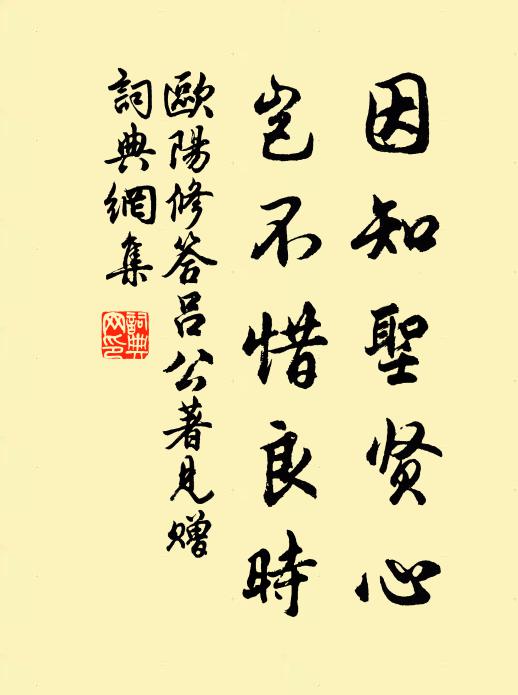 因知聖贤心
豈不惜良時
歐陽修答呂公著見赠
詞典網集
詞典网印